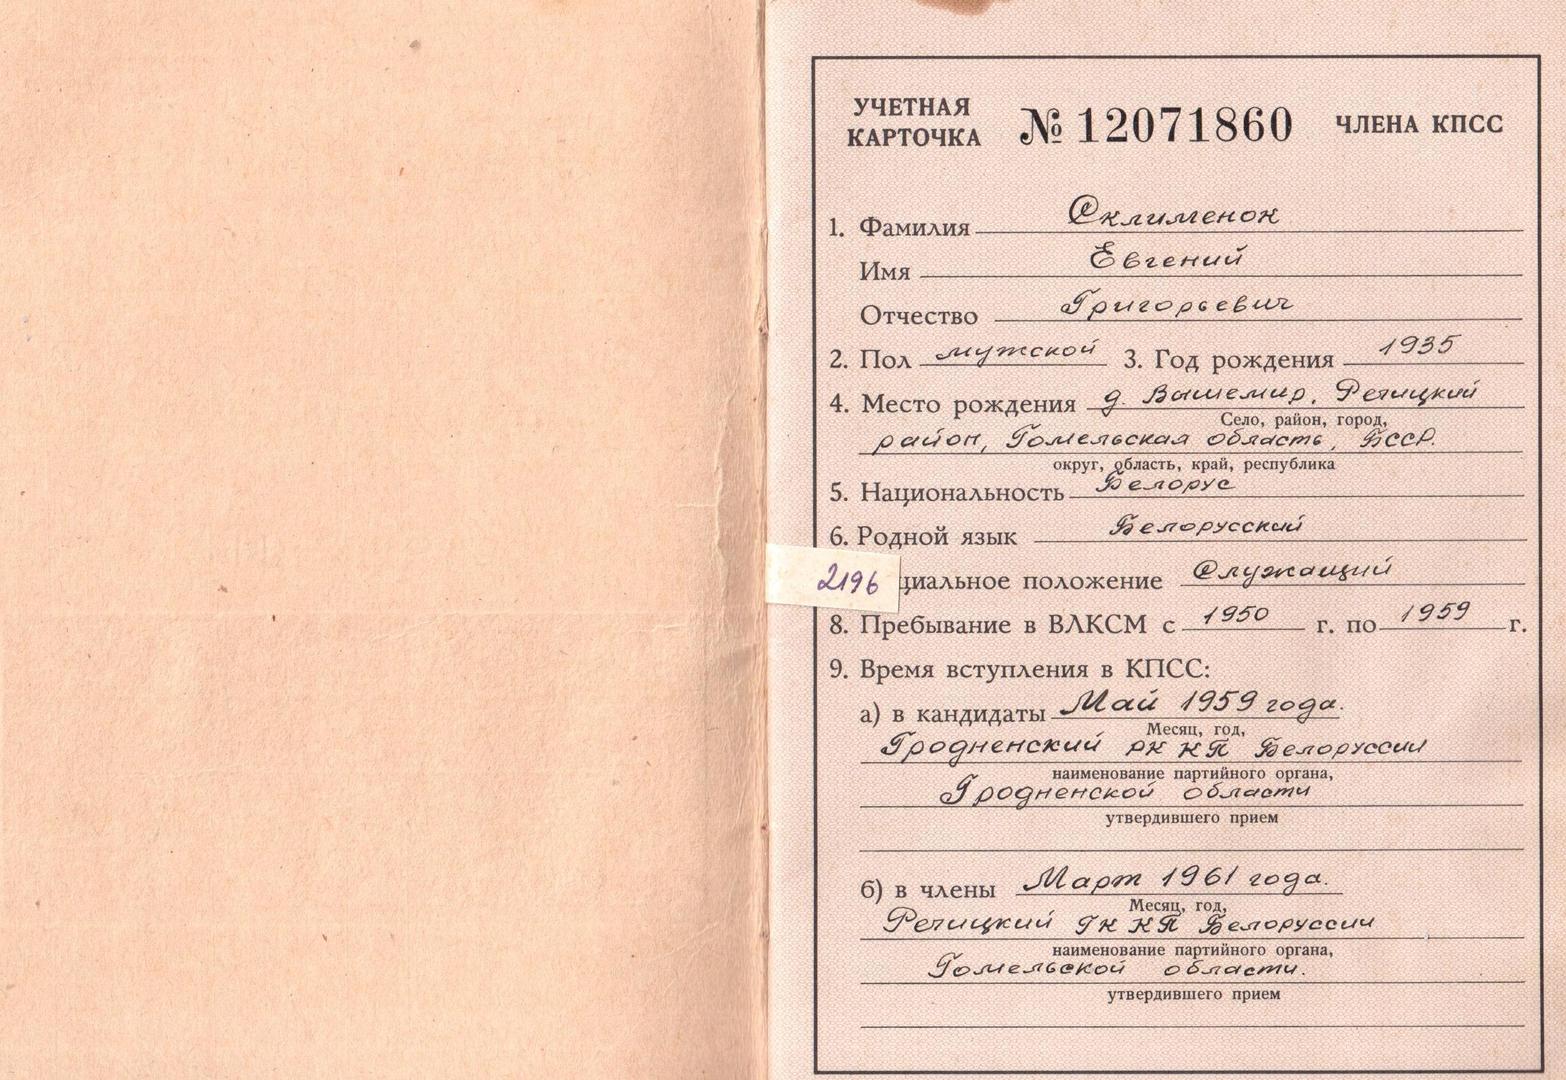 УЧЕТНАЯ КАРТОЧКА № 12071860 ЧЛЕНА КПСС
1. Фамилия Склименок
Имя Евгений
Отчество Григорьевич
2. Пол мужской 3. Год рождения 1935
4. Место рождения д. Вышемир, Речицкий
Село, район, город,
район, Гомельская область, БССР.
округ, область, край, республика
5. Национальность Белорус
6. Родной язык Белорусский
2196 циальное положение Служащий
8. Пребывание в ВЛКСМ с 1950 г. по 1959 г.
9. Время вступления в КПСС:
а) в кандидаты Май 1959 года.
Месяц, год,
Гродненский РК КП Белоруссии
наименование партийного органа,
Гродненской области
утвердившего прием
б) в члены Март 1961 года.
Месяц, год,
Речицкий ГК КП Белоруссии
наименование партийного органа,
Гомельской области.
утвердившего прием